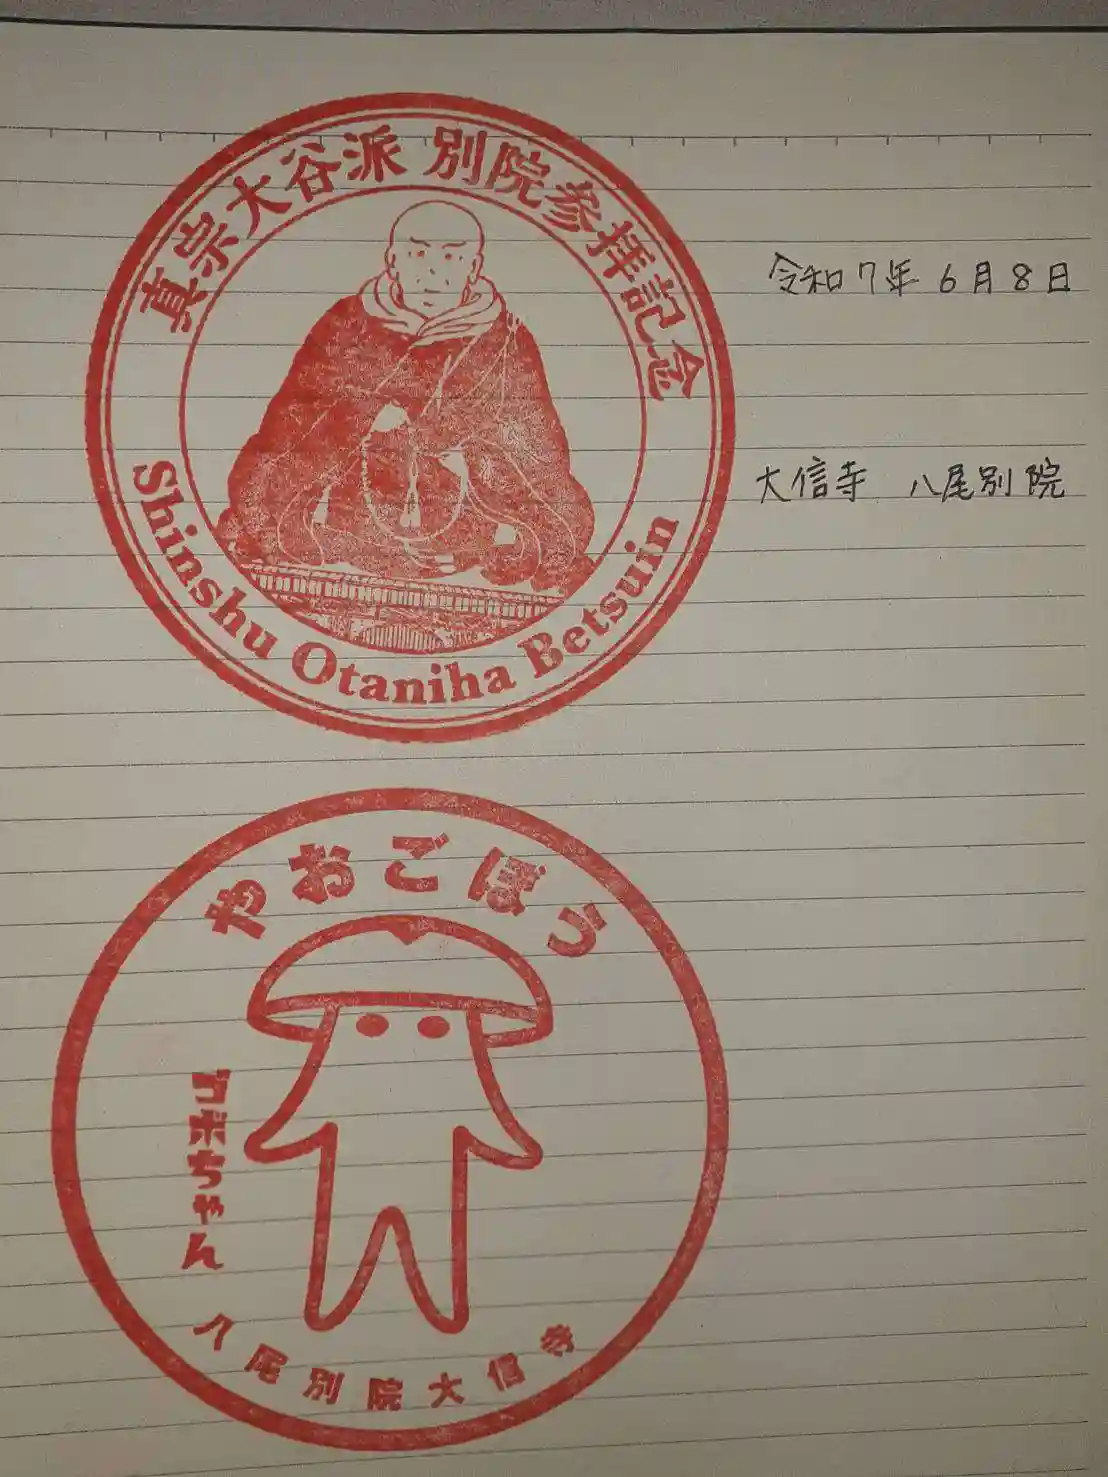 真宗大谷派 別院参拝記念
Shinshu Otaniha Betsuin
令和7年 6月8日
大信寺 八尾別院
やおごぼう
ゴボちゃん
八尾別院大信寺